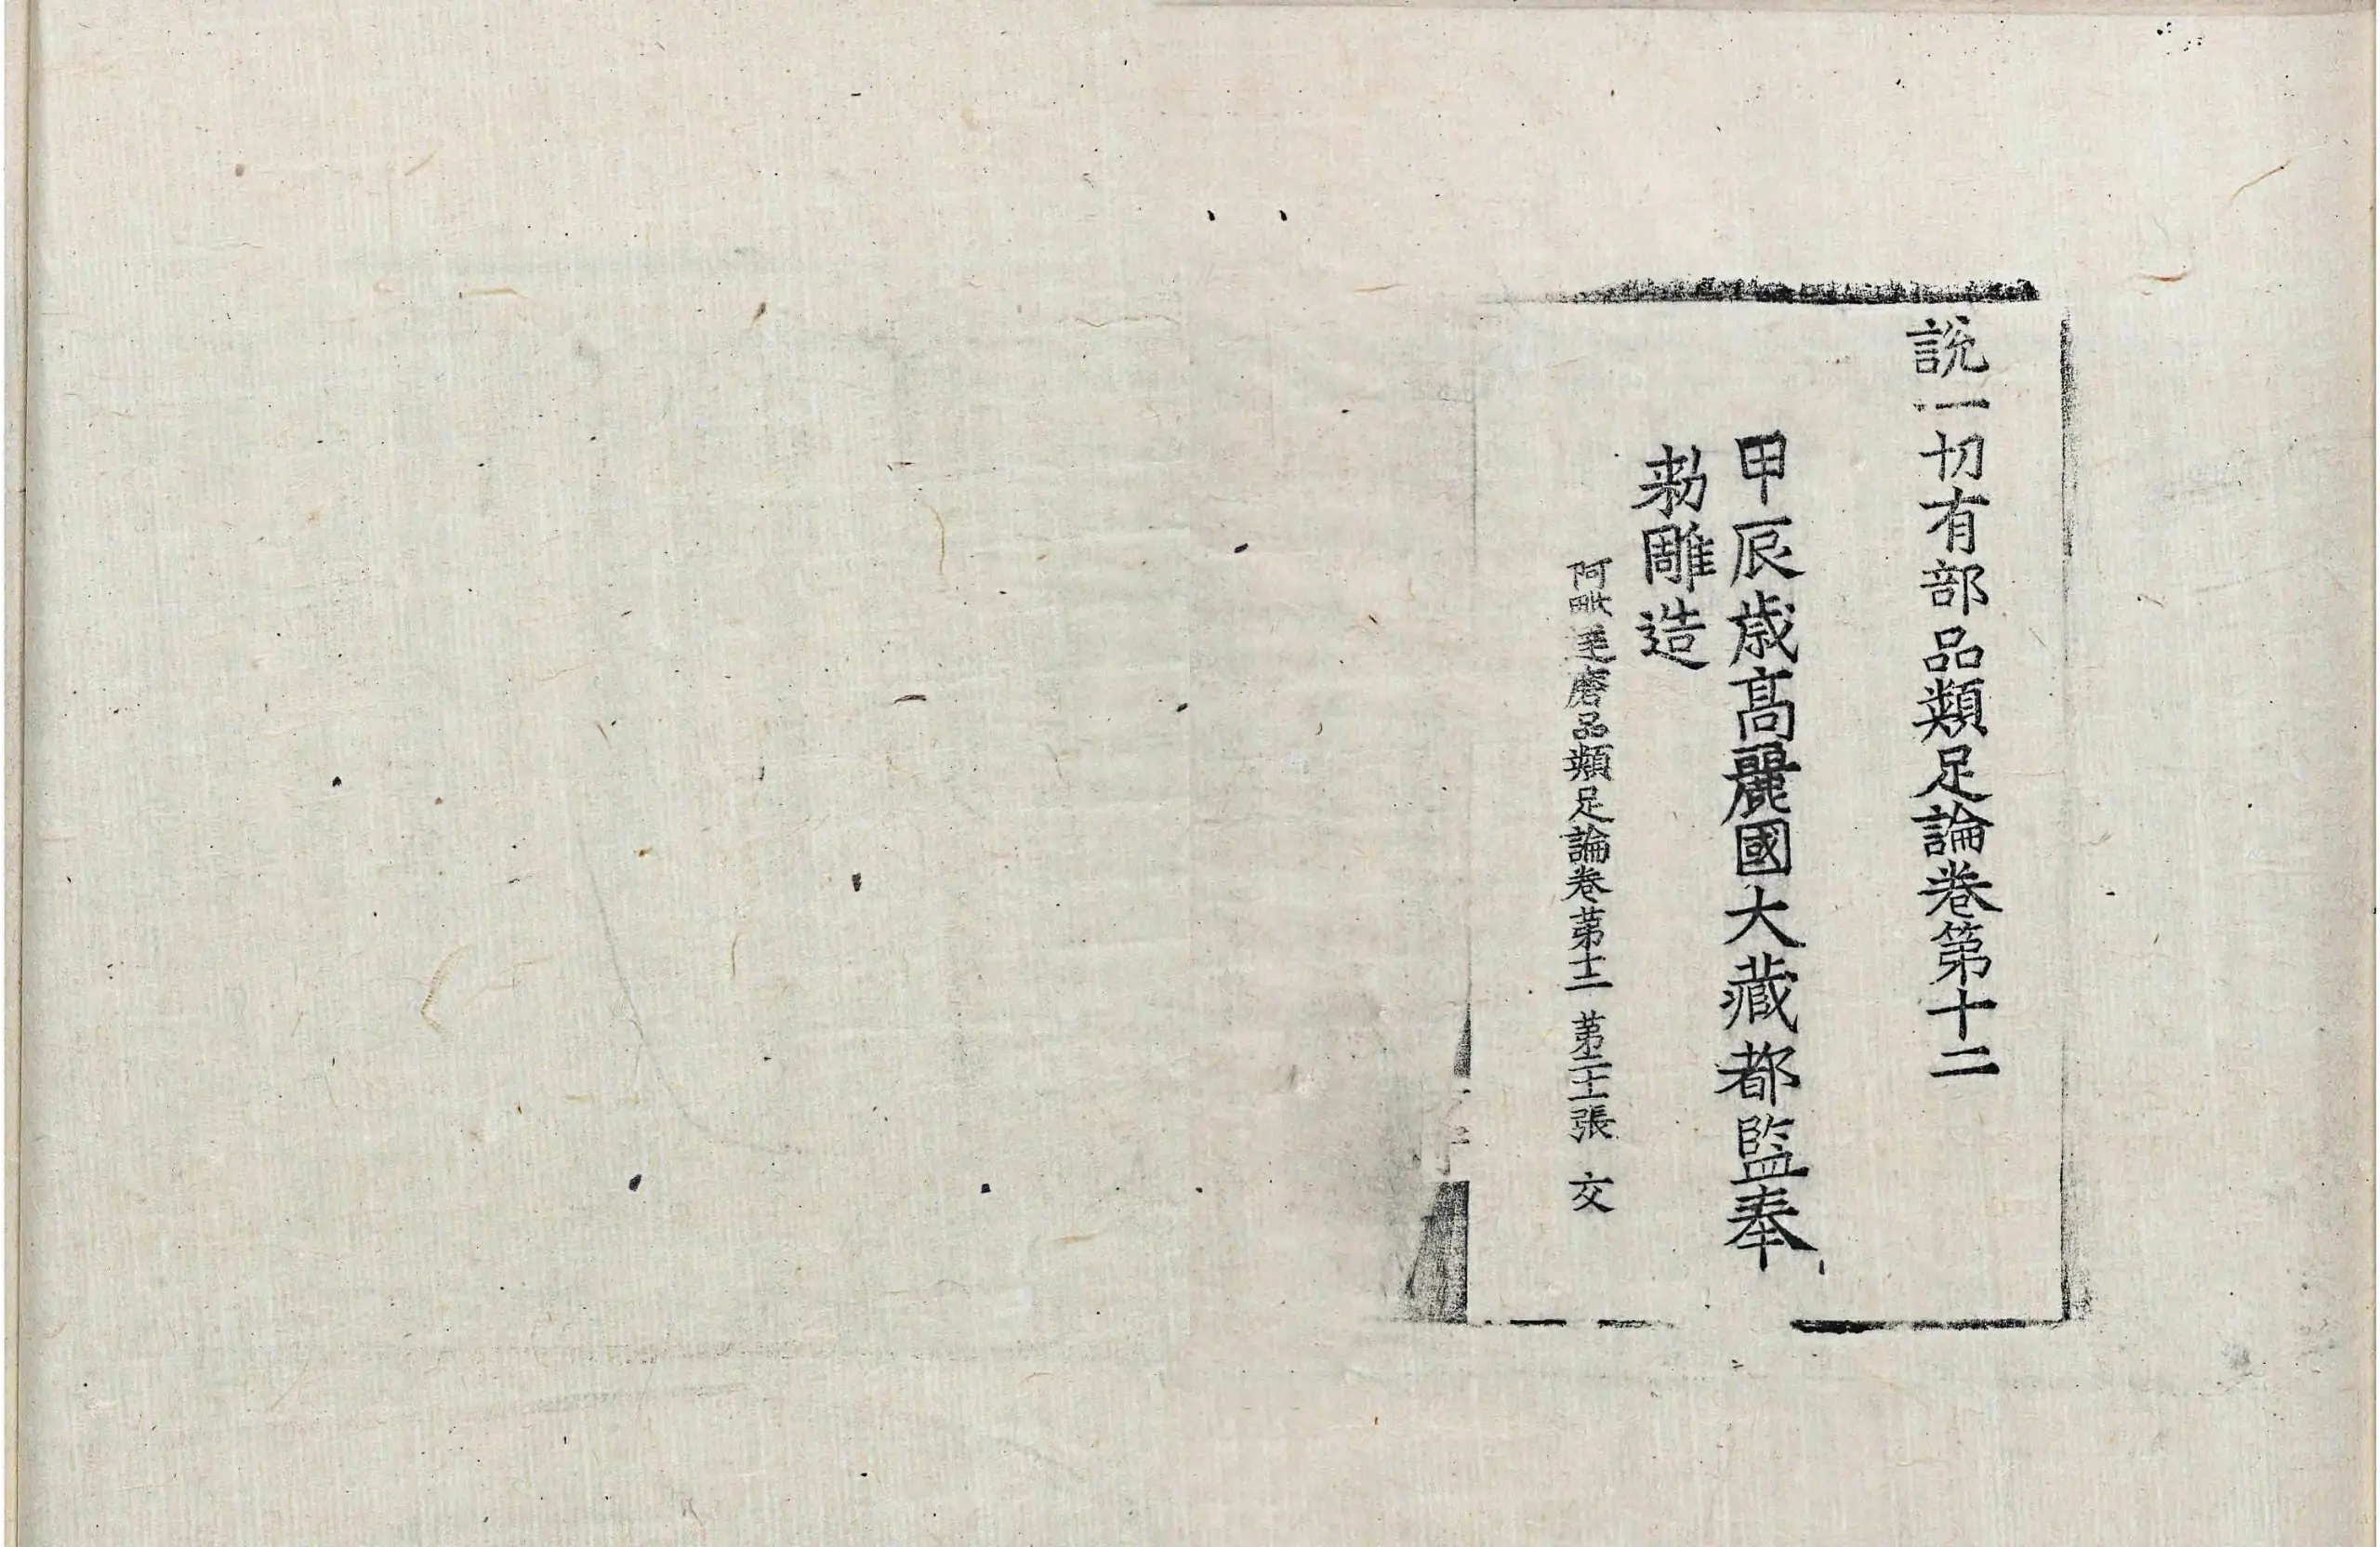 説一切有部品類足論卷第十二
甲辰歳高麗國大藏都監奉
勑雕造
阿毗達磨品類足論卷苐十二 苐二十二張 交